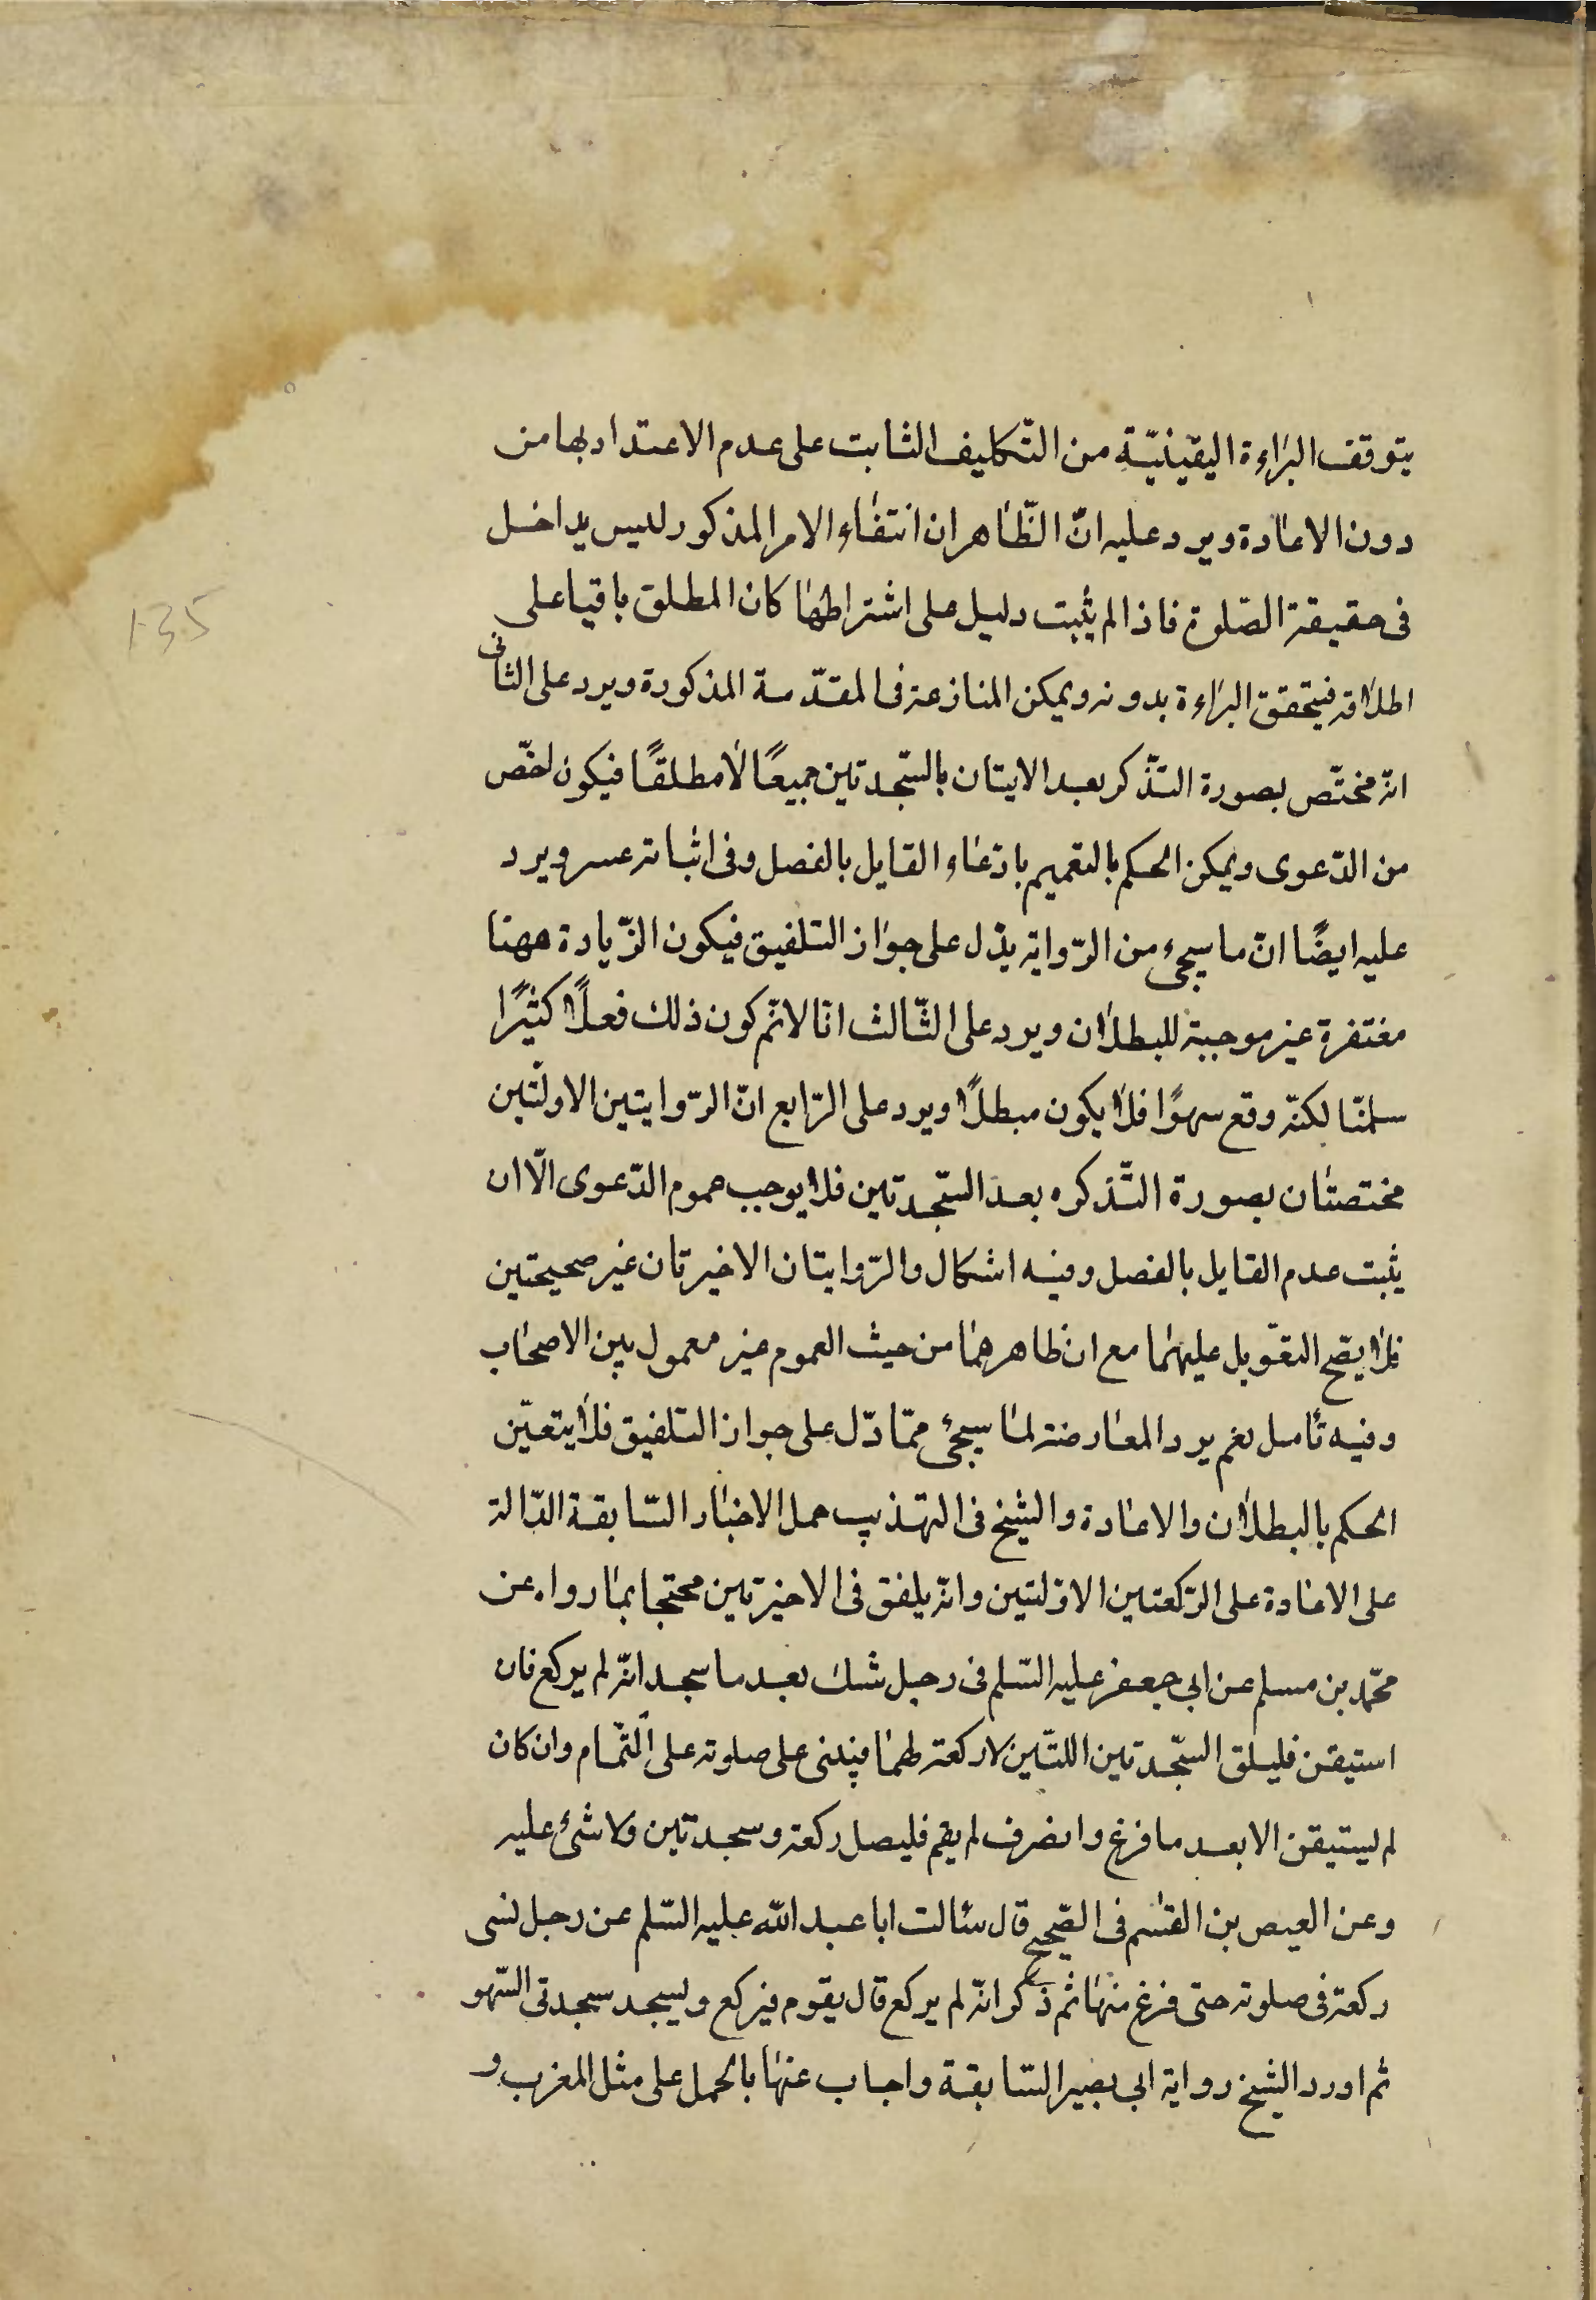 يتوقف البراءة اليقينيّة من التّكليف الثابت على عدم الاعتداد بها من
دون الاعادة ويرد عليه انّ الظّاهر ان انتفاء الامر المذكور لليس بداخل
فى حقيقة الصّلوة فاذا لم يثبت دليل على اشتراطها كان المطلق باقيا على
اطلاقه فيتحقق البراءة بدونه ويمكن المنازعة فى المقدّمة المذكورة ويرد على الثانى
انّه مختصّ بصورة التّذكر بعد الايتان بالسّجدتين جميعًا لا مطلقًا فيكون اخصّ
من الدّعوى ويمكن الحكم بالتعميم بادّعاء القايل بالفصل وفى اثباته عسر ويرد
عليه ايضًا انّ ما سيجىء من الرّواية يدّل على جواز التلفيق فيكون الزّيادة ههنا
مغتفرة غير موجبة للبطلان ويرد على الثّالث انّا لا نمّ كون ذلك فعلًا كثيرًا
سلمنّا لكنّه وقع سهوًا فلا يكون مبطلًا ويرد على الرّابع انّ الرّوايتين الاولّتين
مختصتان بصورة التّذكره بعد السّجدتين فلا يوجب عموم الدّعوى الّا ان
يثبت عدم القايل بالفصل وفيه اشكال والرّوايتان الاخيرتان غير صحيحتين
فلا يصّح التعّويل عليهما مع ان ظاهرهما من حيث العموم غير معمول بين الاصحاب
وفيه تأمل نعم يرد المعارضة لما سيجىء ممّا دّل على جواز التلفيق فلا يتعيّن
الحكم بالبطلان والاعادة والشيخ فى التهذيب حمل الاخبار السّابقة الدّالة
على الاعادة على الرّكعتين الاوّلتين وانّه يلفق فى الاخيرتين محتجا بما رواه عن
محّمد بن مسلم عن ابى جعفر عليه السّلم فى رجل شك بعد ما سجد انّه لم يركع فان
استيقن فليلق السّجدتين اللتّين لا ركعة لهما فيبنى على صلوته على التّمام وان كان
لم ليستيقن الا بعد ما فرغ وانصرف لم يقم فليصل ركعة وسجدتين ولا شىء عليه
وعن العيص بن القسم فى الصّحيح قال سئالت ابا عبد الله عليه السّلم عن رجل نسى
ركعة فى صلوته حتى فرغ منها ثم ذكر انّه لم يركع قال يقوم فيركع ويسجد سجدتى السّهو
ثم اورد الشيخ رواية ابى بصير السّابقة واجاب عنها بالحمل على مثل المغرب و
135